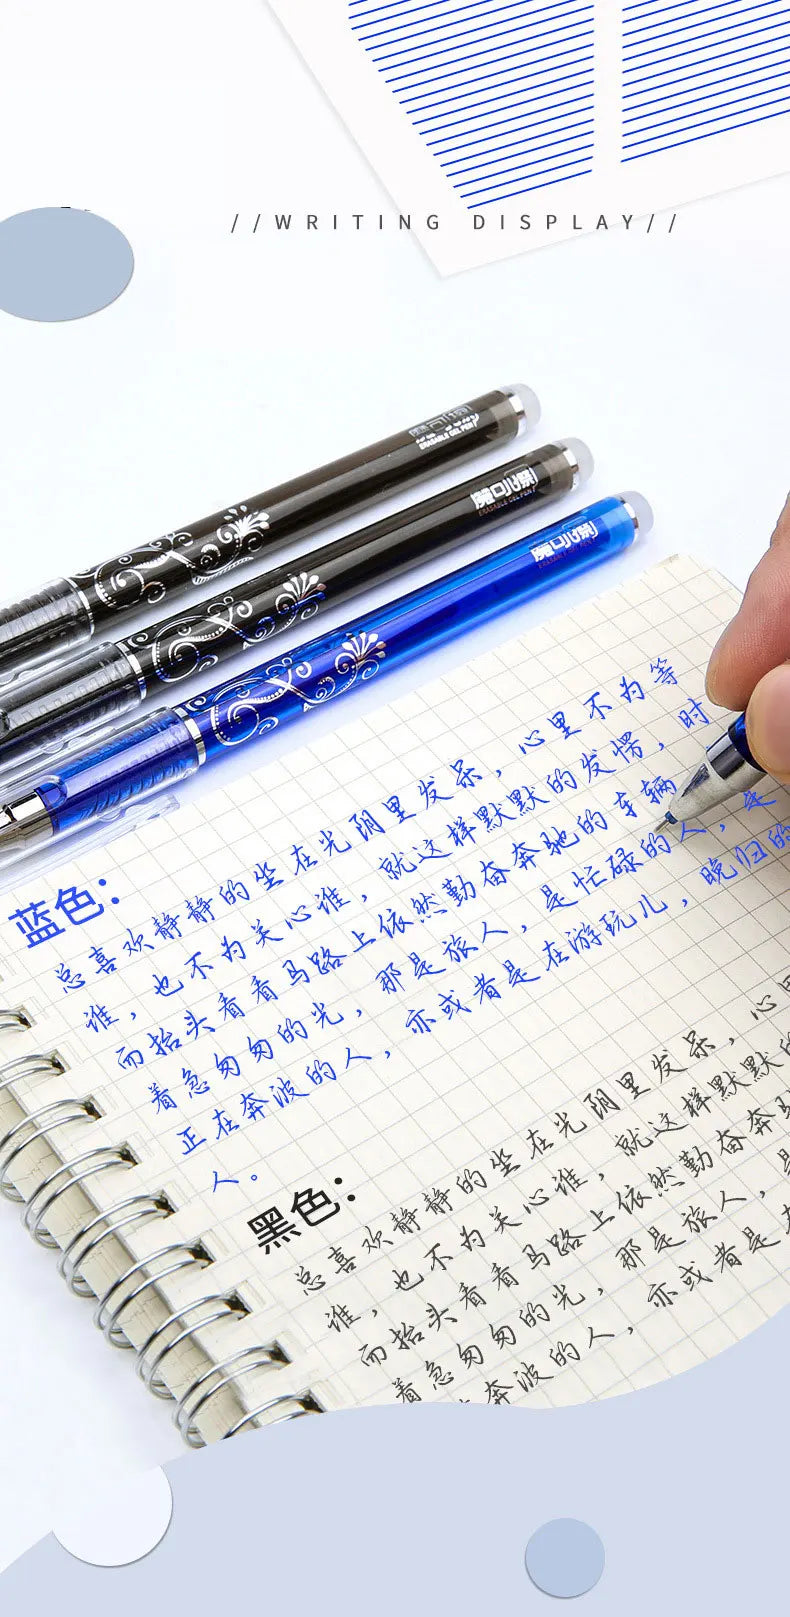 //WRITING DISPLAY//
ERASABLE GEL PEN
魔可擦
ERASABLE GEL PEN
魔可擦
蓝色：
总喜欢静静的坐在光阴里发呆，心里不为等
谁，也不为关心谁，就这样默默的发愣，时
而抬头看看马路上依然勤奋奔驰的车辆
着急匆匆的光，那是旅人，是忙碌的人，是
正在奔波的人，亦或者是在游玩儿，晚归的
人。
黑色：
总喜欢静静的坐在光阴里发呆，心里
谁，也不为关心谁，就这样默默的
而抬头看看马路上依然勤奋奔驰
着急匆匆的光，那是旅人，是
奔波的人，亦或者是在